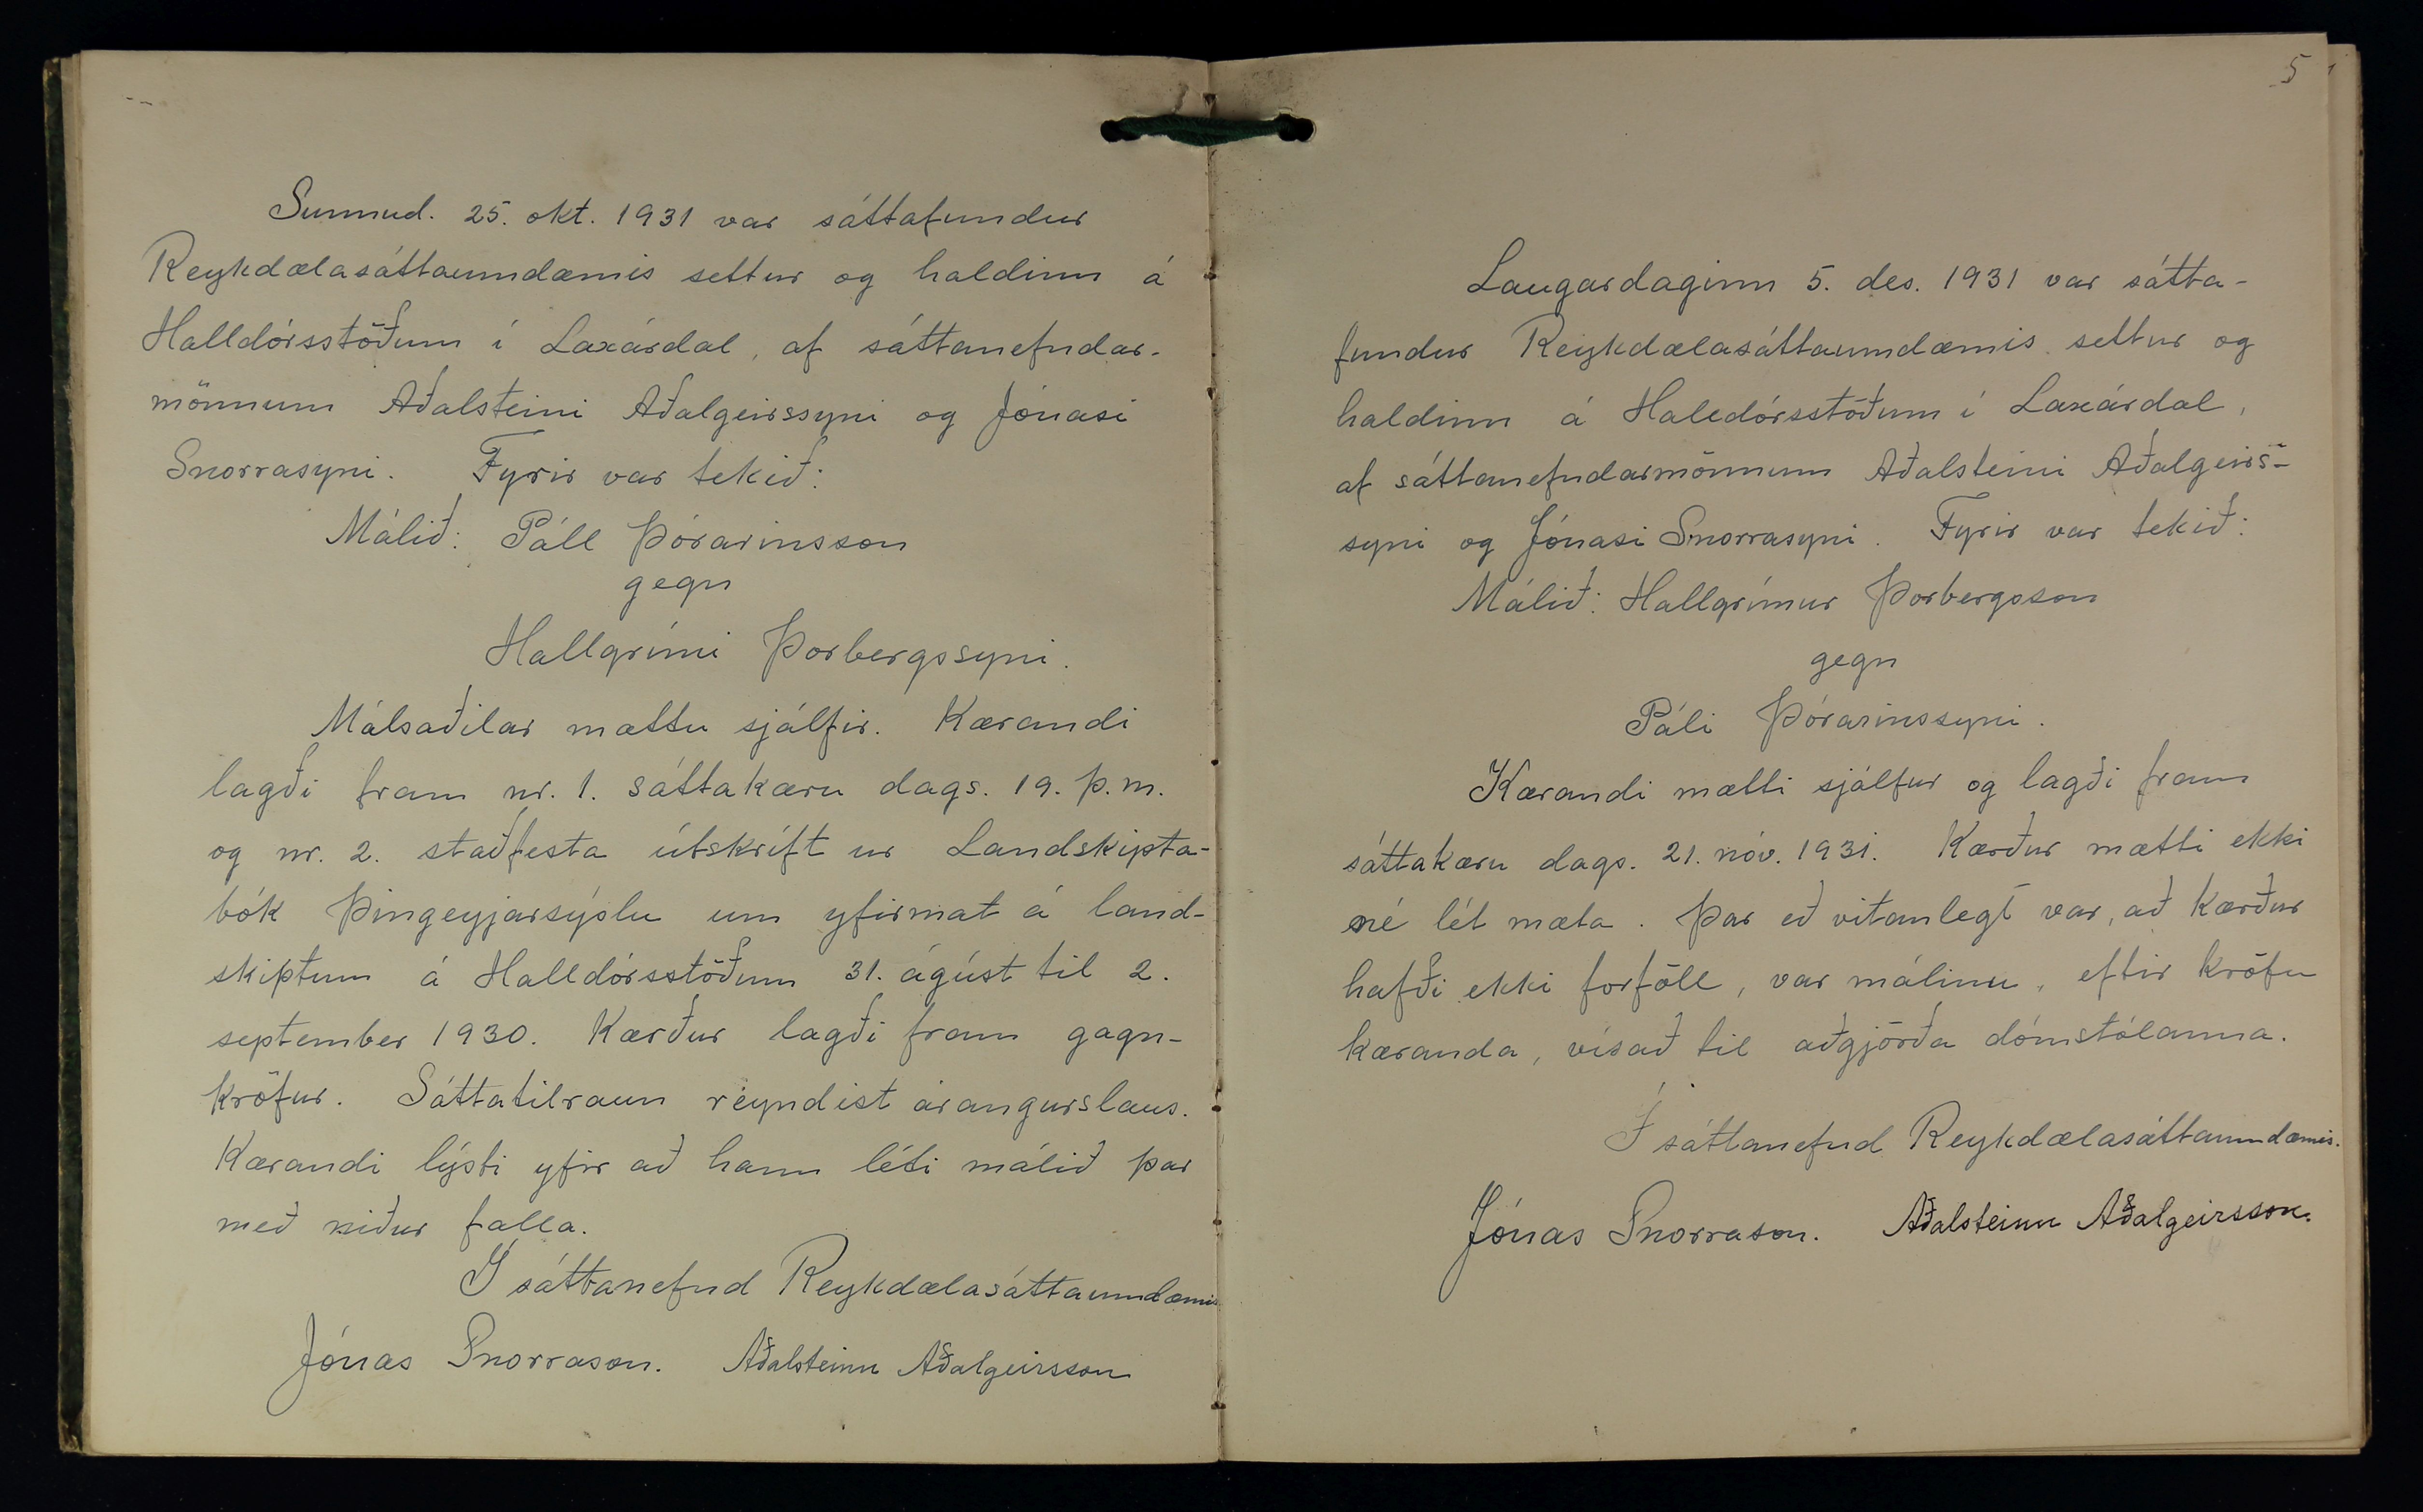 Sunnud. 25. okt. 1931 var sáttafundur
Reykdælasáttaumdæmis settur og haldinn á
Halldórsstöðum í Laxárdal, af sáttanefndar-
mönnum Aðalsteini Aðalgeirssyni og Jónasi
Snorrasyni. Fyrir var tekið:
Málið: Páll Þórarinsson
gegn
Hallgrími Þorbergssyni.
Málsaðilar mættu sjálfir. Kærandi
lagði fram nr. 1. sáttakæru dags. 19. þ.m.
og nr. 2. staðfesta útskrift ur Landskipta-
bók Þingeyjarsýslu um yfirmat á land-
skiptum á Halldórsstöðum 31. ágúst til 2.
september 1930. Kærður lagði fram gagn-
kröfur. Sáttatilraun reyndist árangurslaus.
Kærandi lýsti yfir að hann léti málið þar
með niður falla.
Í sáttanefnd Reykdælasáttaumdæmis
Jónas Snorrason. Aðalsteinn Aðalgeirsson
5
Laugardaginn 5. des. 1931 var sátta-
fundur Reykdælasáttaumdæmis settur og
haldinn á Halldórsstöðum í Laxárdal,
af sáttanefndarmönnum Aðalsteini Aðalgeirs-
syni og Jónasi Snorrasyni. Fyrir var tekið:
Málið: Hallgrímur Þorbergsson
gegn
Páli Þórarinssyni.
Kærandi mætti sjálfur og lagði fram
sáttakæru dags. 21. nóv. 1931. Kærður mætti ekki
né lét mæta. Þar eð vitanlegt var, að kærður
hafði ekki forföll, var málinu, eftir kröfu
kæranda, vísað til aðgjörða dómstólanna.
Í sáttanefnd Reykdælasáttaumdæmis.
Jónas Snorrason. Aðalsteinn Aðalgeirsson.